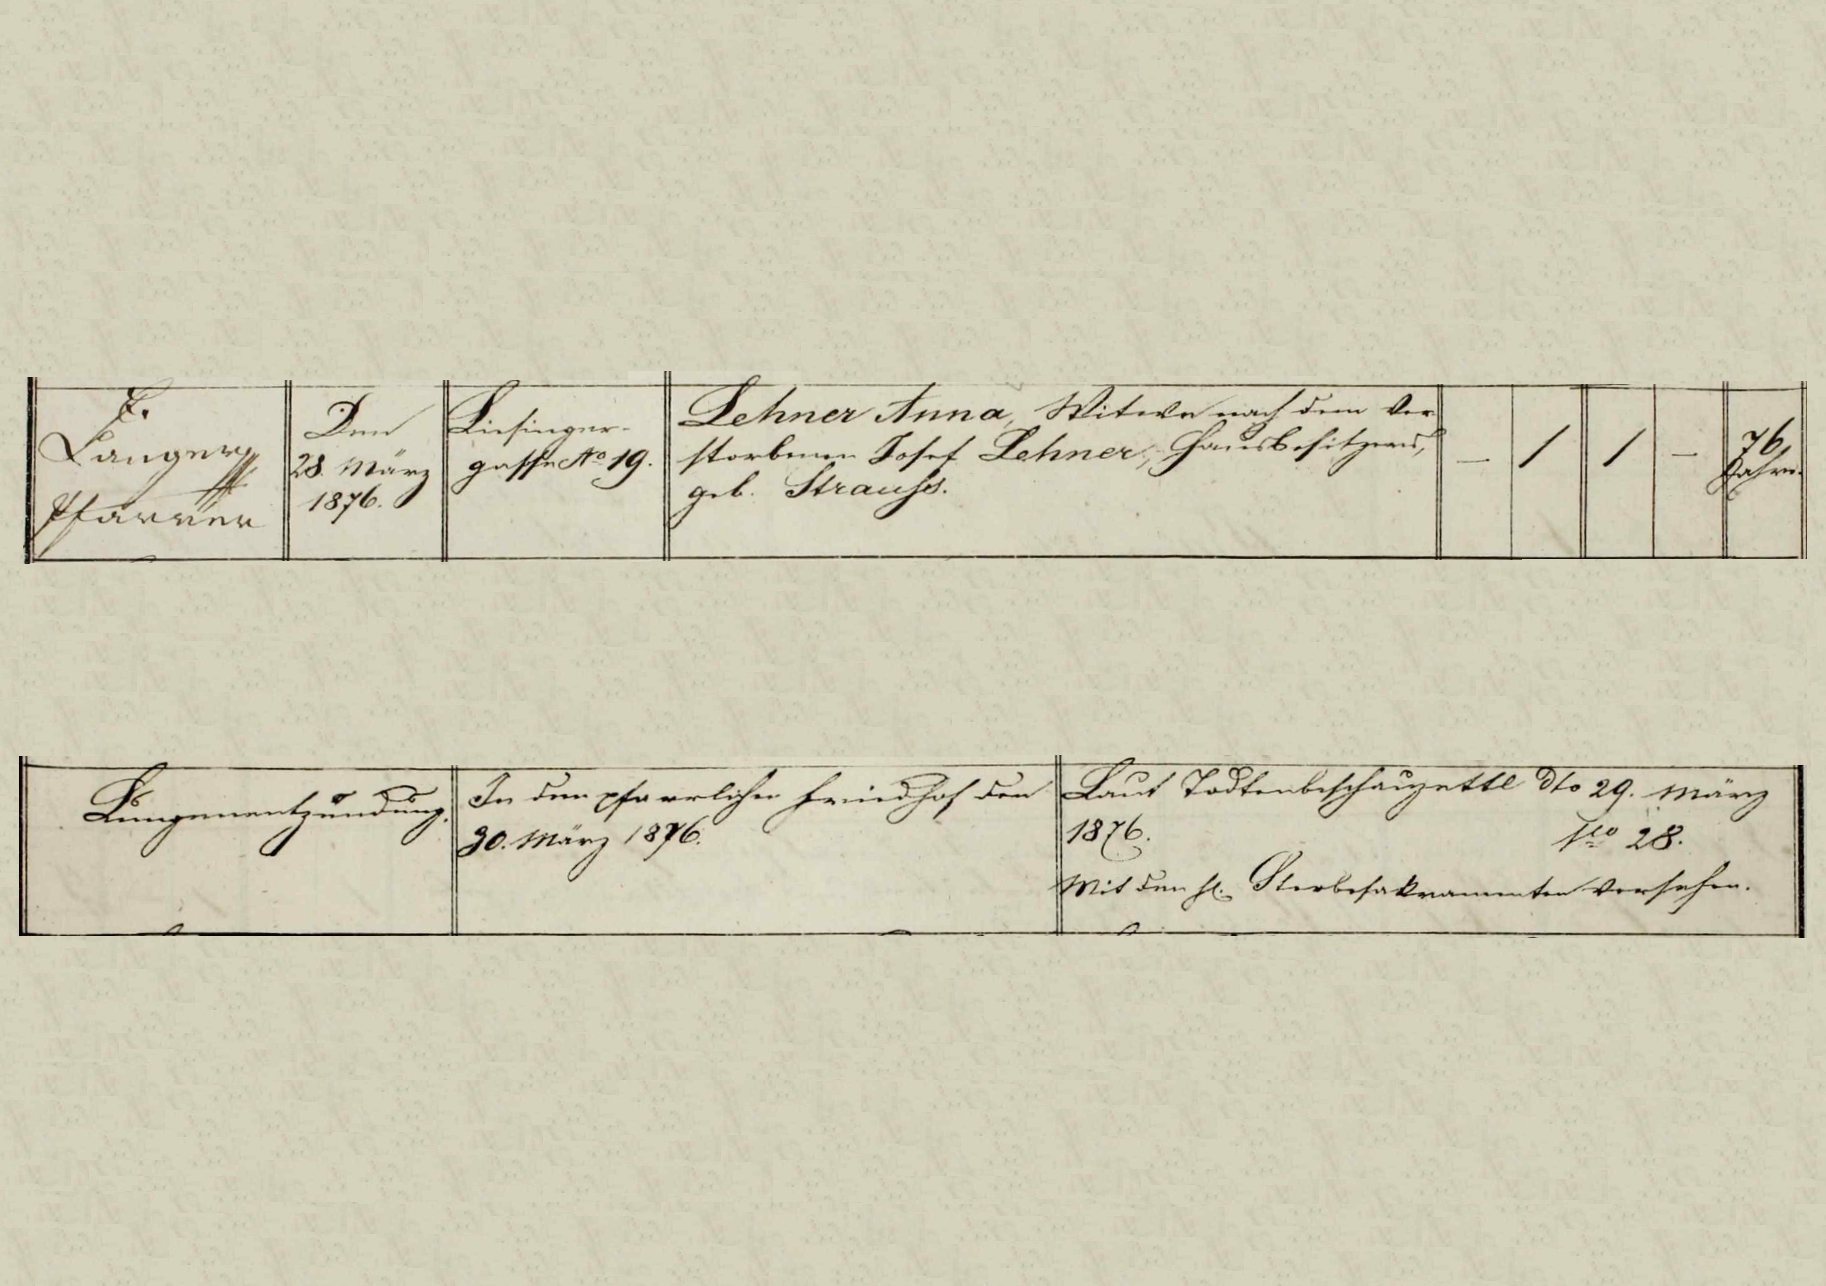 F.
Langer
Pfarrer
Den
28. März
1876.
Liesinger-
gasse No 19.
Lehner Anna, Witwe nach dem Ver-
storbenen Josef Lehner, Hausbesitzers,
geb. Strauss.
—
/
/
—
76
Jahre.
Lungenentzündung.
In dem pfarrlichen Friedhof den
30. März 1876.
Laut Todtenbeschauzettl dto 29. März
1876.
No 28.
Mit den hl. Sterbesakramenten versehen.